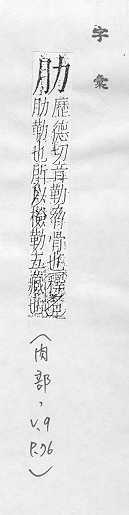 字彙
肋
歷德切音勒脅骨也釋名
肋勒也所以檢勒五藏也
(肉部,
V.9
P.76)